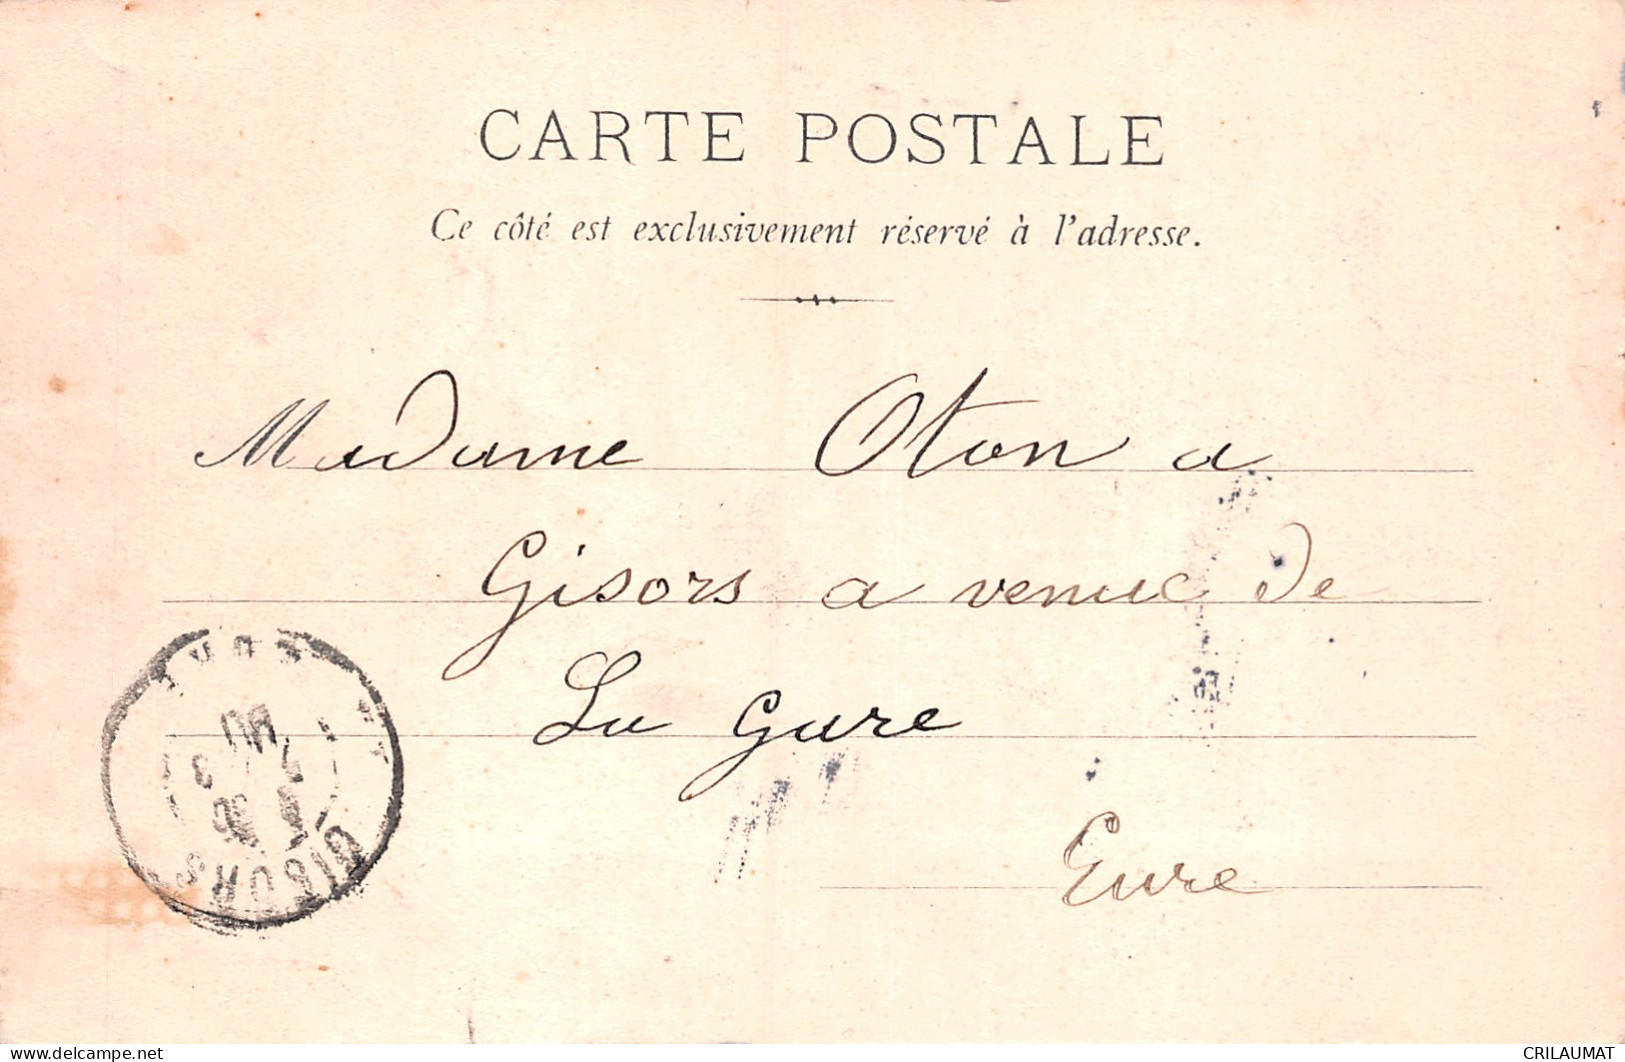 CARTE POSTALE
Ce côté est exclusivement réservé à l'adresse.
Madame Oton a
Gisors avenue de
La Gare
Eure
GISORS
EURE
delcampe.net
CRILAUMAT